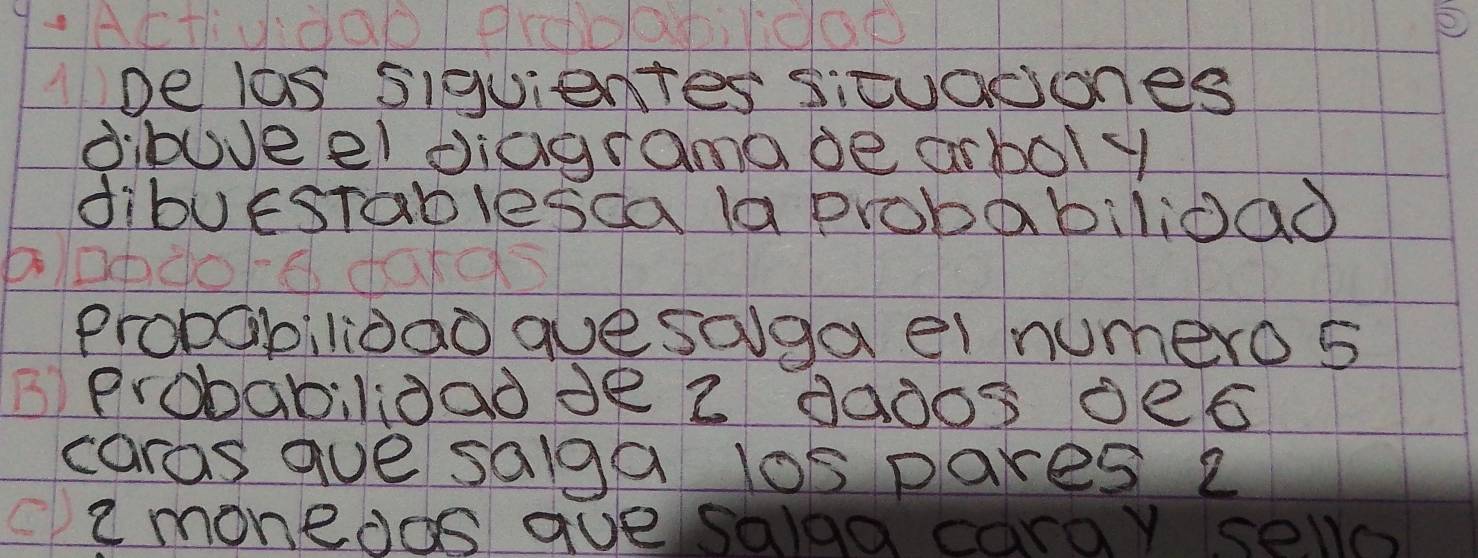 - Actividad probabilidad
1) De las siguientes situaciones
dibuve el diagrama de arbol y
dibu Establesca la probabilidad
a) Dado - 6 caras
probabilidad que salga el numero 5
B) probabilidad de 2 dados de 6
caras que salga los pares 2
C) 2 monedas que salga cara y sello